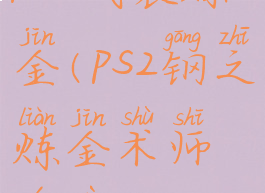 jīn gāng zhī
金(PS2钢之
liàn jīn shù shī
炼金术师